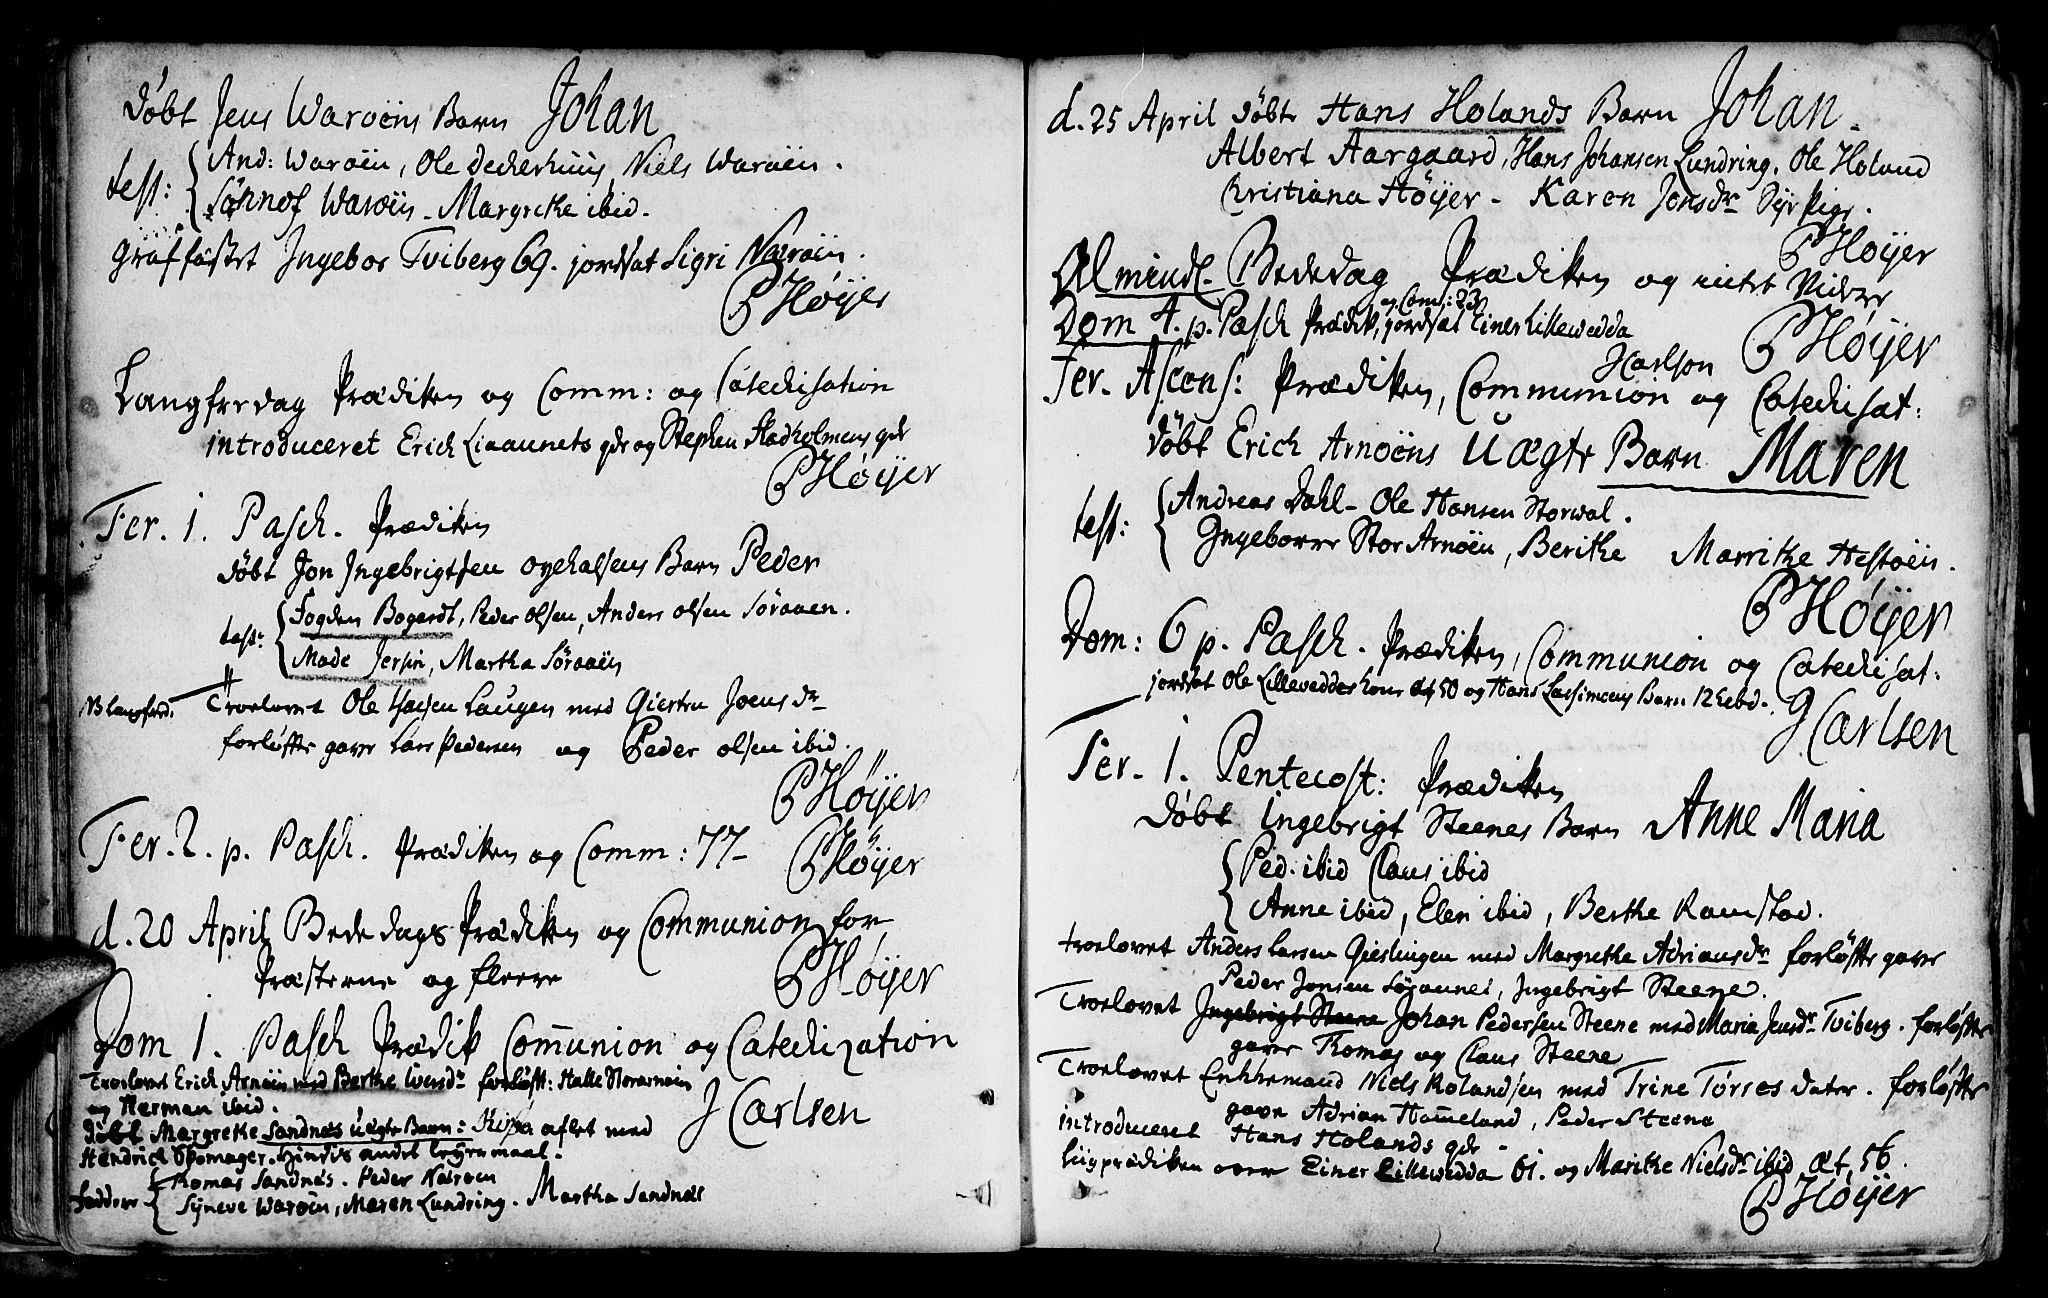 Døbt Jens Warøens Barn Johan
test: And: Warøen, Ole Deckerhuus, Niels Warøen.
Sønnof Warøen - Margrete ibid.
Graffæstet Ingebor Tviberg 69. jordsat Sigri Nærøen.
P Höijer
Langfredag Prædiken og Comm: og Catechisation
introduceret Erich Liaaunets qdr og Stephen Hadholmens qdr
P Höijer
Fer. 1. Pasch. Prædiken
døbt Jon Ingebrigtsen Oyehalsens Barn Peder
test: Fogden Bogardt, Peder Olsen, Anders Olsen Søraaen.
Made Jersin, Martha Søraaen
NB Langfred. Troelovet Ole Hansen Laugen med Giertru Joensdr
forløfte gave Lars Pedersen og Peder Olsen ibid.
P Höijer
Fer. 2. p. Pasch. Prædiken og Comm: 77-
P Höijer
d. 20 April Bededags Prædiken og Communion for
Præsterne og fleere
P Höijer
Dom 1. Pasch Prædik Communion og Catechization
Troelovet Erich Arnøen med Berthe Iversdr forløfte: Halle Storarnøen
og Herman ibid.
J Carlsen
døbt Margrete Sandnæs Uægte Barn: aflet med
Hendrich Skomager. Hindis andet leyermaal.
faddere Tomas Sandnæs. Peder Nærøen
Syneve Warøen, Maren Lundring. Martha Sandnæs
d. 25 April Døbt Hans Holands Barn Johan
Albert Aargaard, Hans Johansen Lundring, Ole Holand
Christiana Höijer - Karen Jonsdr
P Höijer
Almindl. Bededag Prædiken og intet Videre
og Com: 23
Dom 4. p. Pasch Prædik, jordsat Einer Lillewedda
P Höijer
Fer. Ascens: Prædiken, Communion og Catechisat:
døbt Erich Arnøens Uægte Barn Maren
test: Andreas Dahl - Ole Hansen Storwal.
Ingeborre Stor Arnøen, Berithe Marrithe Hestøen.
P Höijer
Dom: 6 p. Pasch. Prædiken, Communion og Catechisat:
jordsat Ole Lilleveddes kone æt 50 og Hans Barn 12 Hebd.
J Carlsen
Fer. 1. Pentecost: Prædiken
Døbt Ingebrigt Steenes Barn Anne Maria
Ped: ibid Claus ibid
Anne ibid, Elen ibid, Berthe Ramstad.
Troelovet Anders Larsen Gieslingen med Margrethe Adriansdr forløfte gave
Peder Jonsen Söraunet, Ingebrigt Steene.
Troelovet Ingebrigt Steene Johan Pedersen Steene med Maria Jensdr Tviberg. forløfte
gave Tomas og Claus Steene
Troelovet Enkkemand Niels Rolandsen med Trine Törres dater. forløfte
gave Adrian Hommeland, Peder Steene
introduceret Hans Holands qdr
Liigprædiken over Einer Lillewedda 61. og Marithe Nielsdr ibid æt. 56.
P Höijer